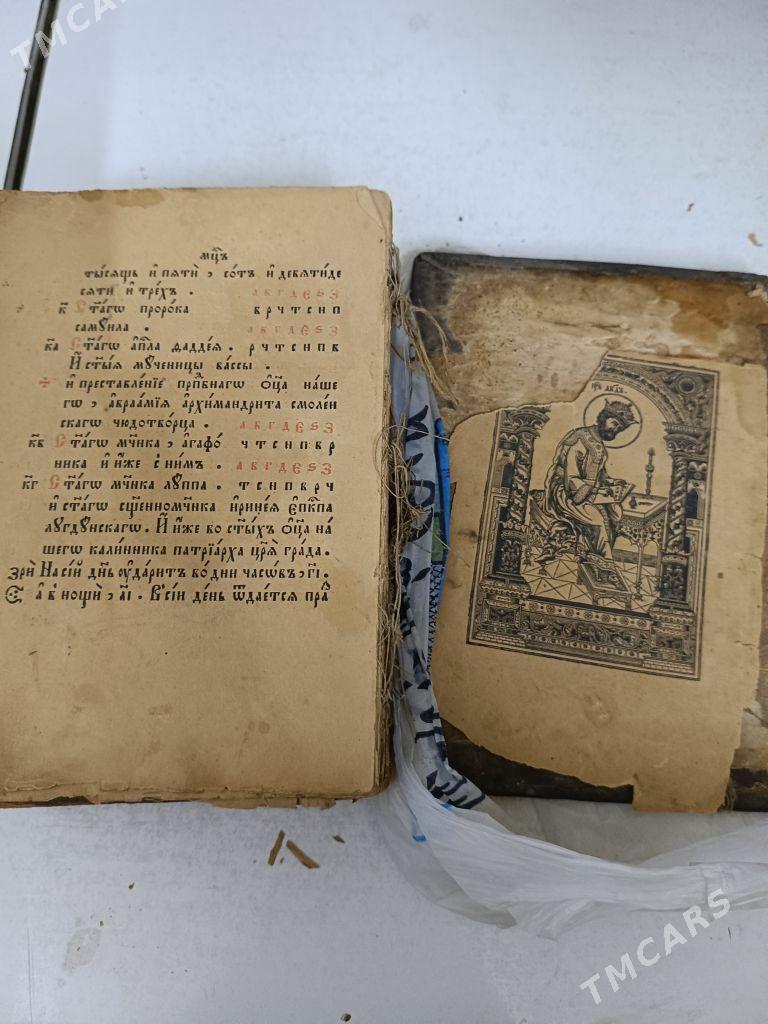 TMCARS
мц҃ъ
ты́сящь и҆ пѧти̑ , со́тъ и҆ девѧти́де
сѧти и҆ тре́хъ .
а в г д є ѕ з
к҃ Ст҃а́гѡ проро́ка в р ч т с н п
самꙋи́ла .
а в г д є ѕ з
к҃а Ст҃а́гѡ а҆п҃ла ѳадде́ѧ . р ч т с н п в
И҆ ст҃ы́ѧ мꙋ́ченицы ва́ссы .
и҆ преставле́нїе прпⷣбнагѡ ѻ҆ц҃а̀ на́ше
гѡ , а҆враа́мїѧ а҆рхїмандри́та смоле́н
скагѡ чюдотво́рца .
а в г д є ѕ з
к҃в Ст҃а́гѡ мч҃нка , а҆гаѳо́ ч т с н п в р
ника и҆ и҆́же с ни́мъ .
а в г д є ѕ з
к҃г Ст҃а́гѡ мч҃нка лꙋ́ппа . т с н п в р ч
и҆ ст҃а́гѡ сщ҃енномч҃нка и҆рине́ѧ є҆п҃кпа
лꙋгдꙋ́нскагѡ . И҆ и҆́же во ст҃ы́хъ ѻ҆ц҃а̀ на
шегѡ кали́нника патрїа́рха цр҃ѧ гра́да .
зри̑ На сі́й дн҃ь ᲂу҆да́ритъ во́ дни часѡ́въ , г҃і .
а҆ в нощи̑ , а҃і . В сі́и де́нь ѿдае́тсѧ пра́
цр҃ь дв҃дъ
TMCARS